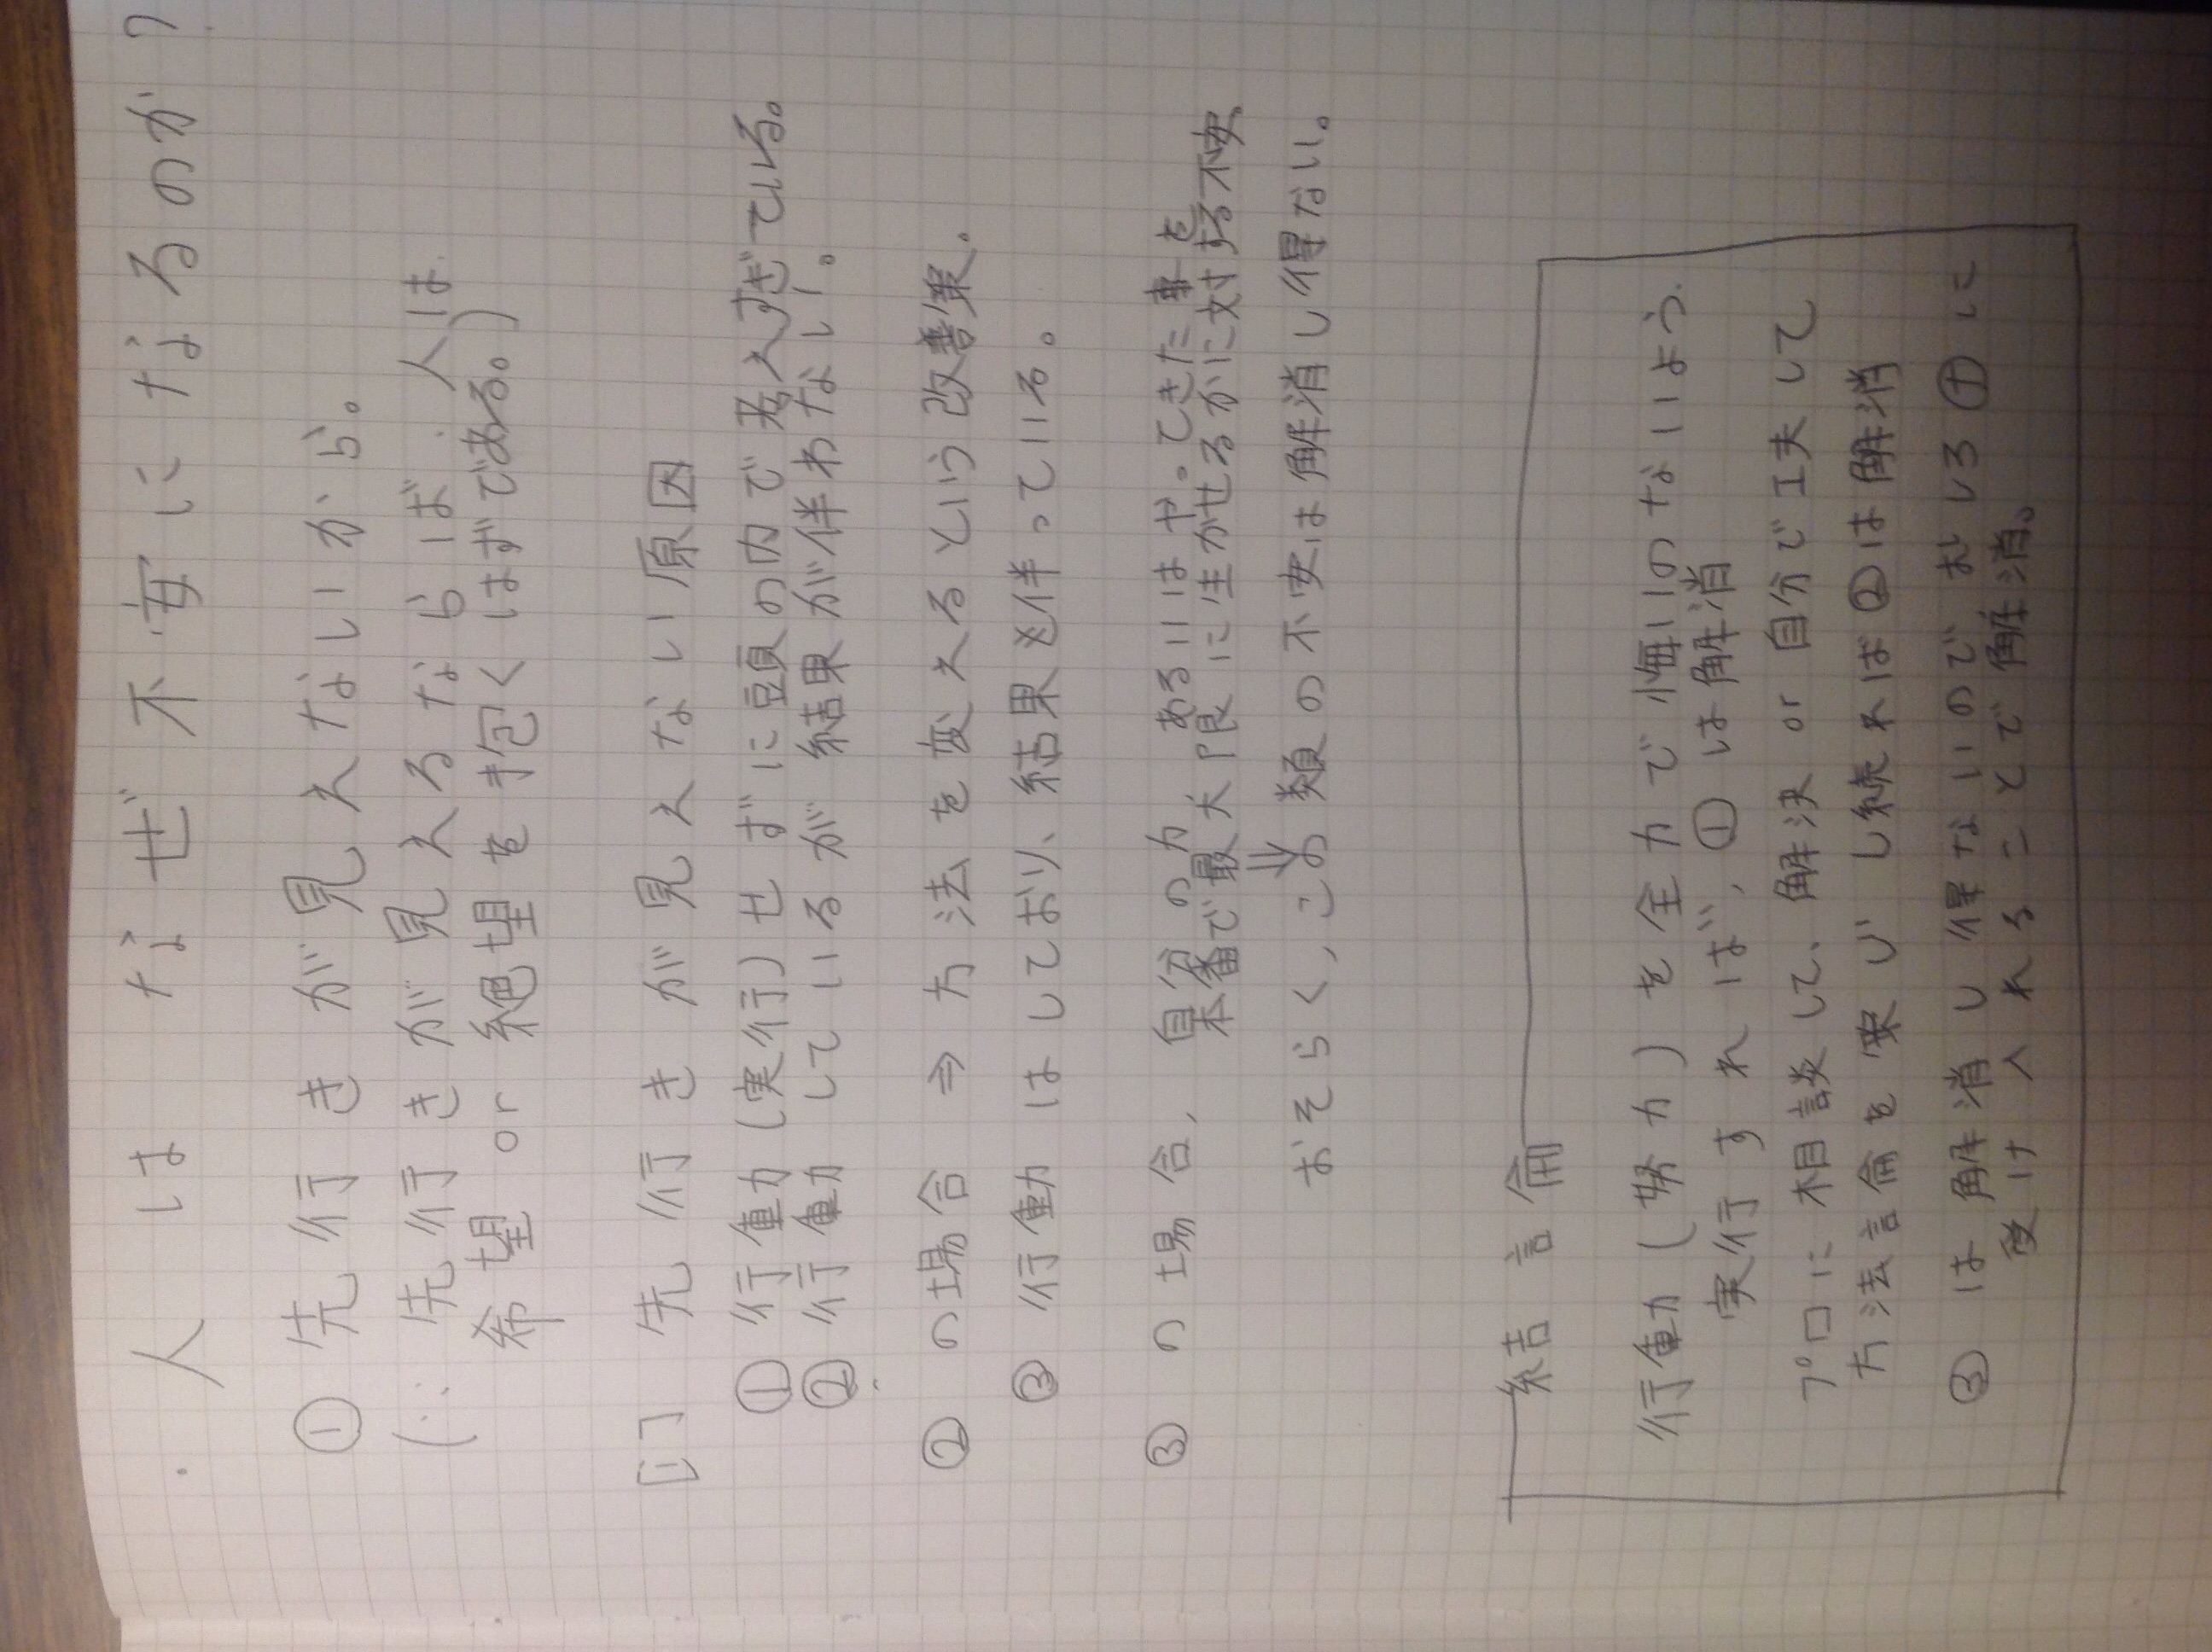 ・人は なぜ不安になるのか?
① 先行きが見えないから。
(∵ 先行きが見えるならば、人は
希望 or 絶望を抱くはずである。)
[i] 先行きが見えない原因
① 行動(実行)せずに頭の内で考えすぎている。
② 行動しているが 結果が伴わない。
② の場合 ⇒ 方法を変えるという改善策。
③ 行動はしており、結果も伴っている。
③ の場合、自分の力 あるいはやってきた事を
本番で最大限に生かせるかに対する不安
⇓
おそらく、この類の不安は解消し得ない。
結論
行動(努力)を全力で悔いのないよう
実行すれば、①は解消
プロに相談して、解決 or 自分で工夫して
方法論を案じし続ければ②は解消
③は解消し得ないのでむしろ㊉に
受け入れることで解消。